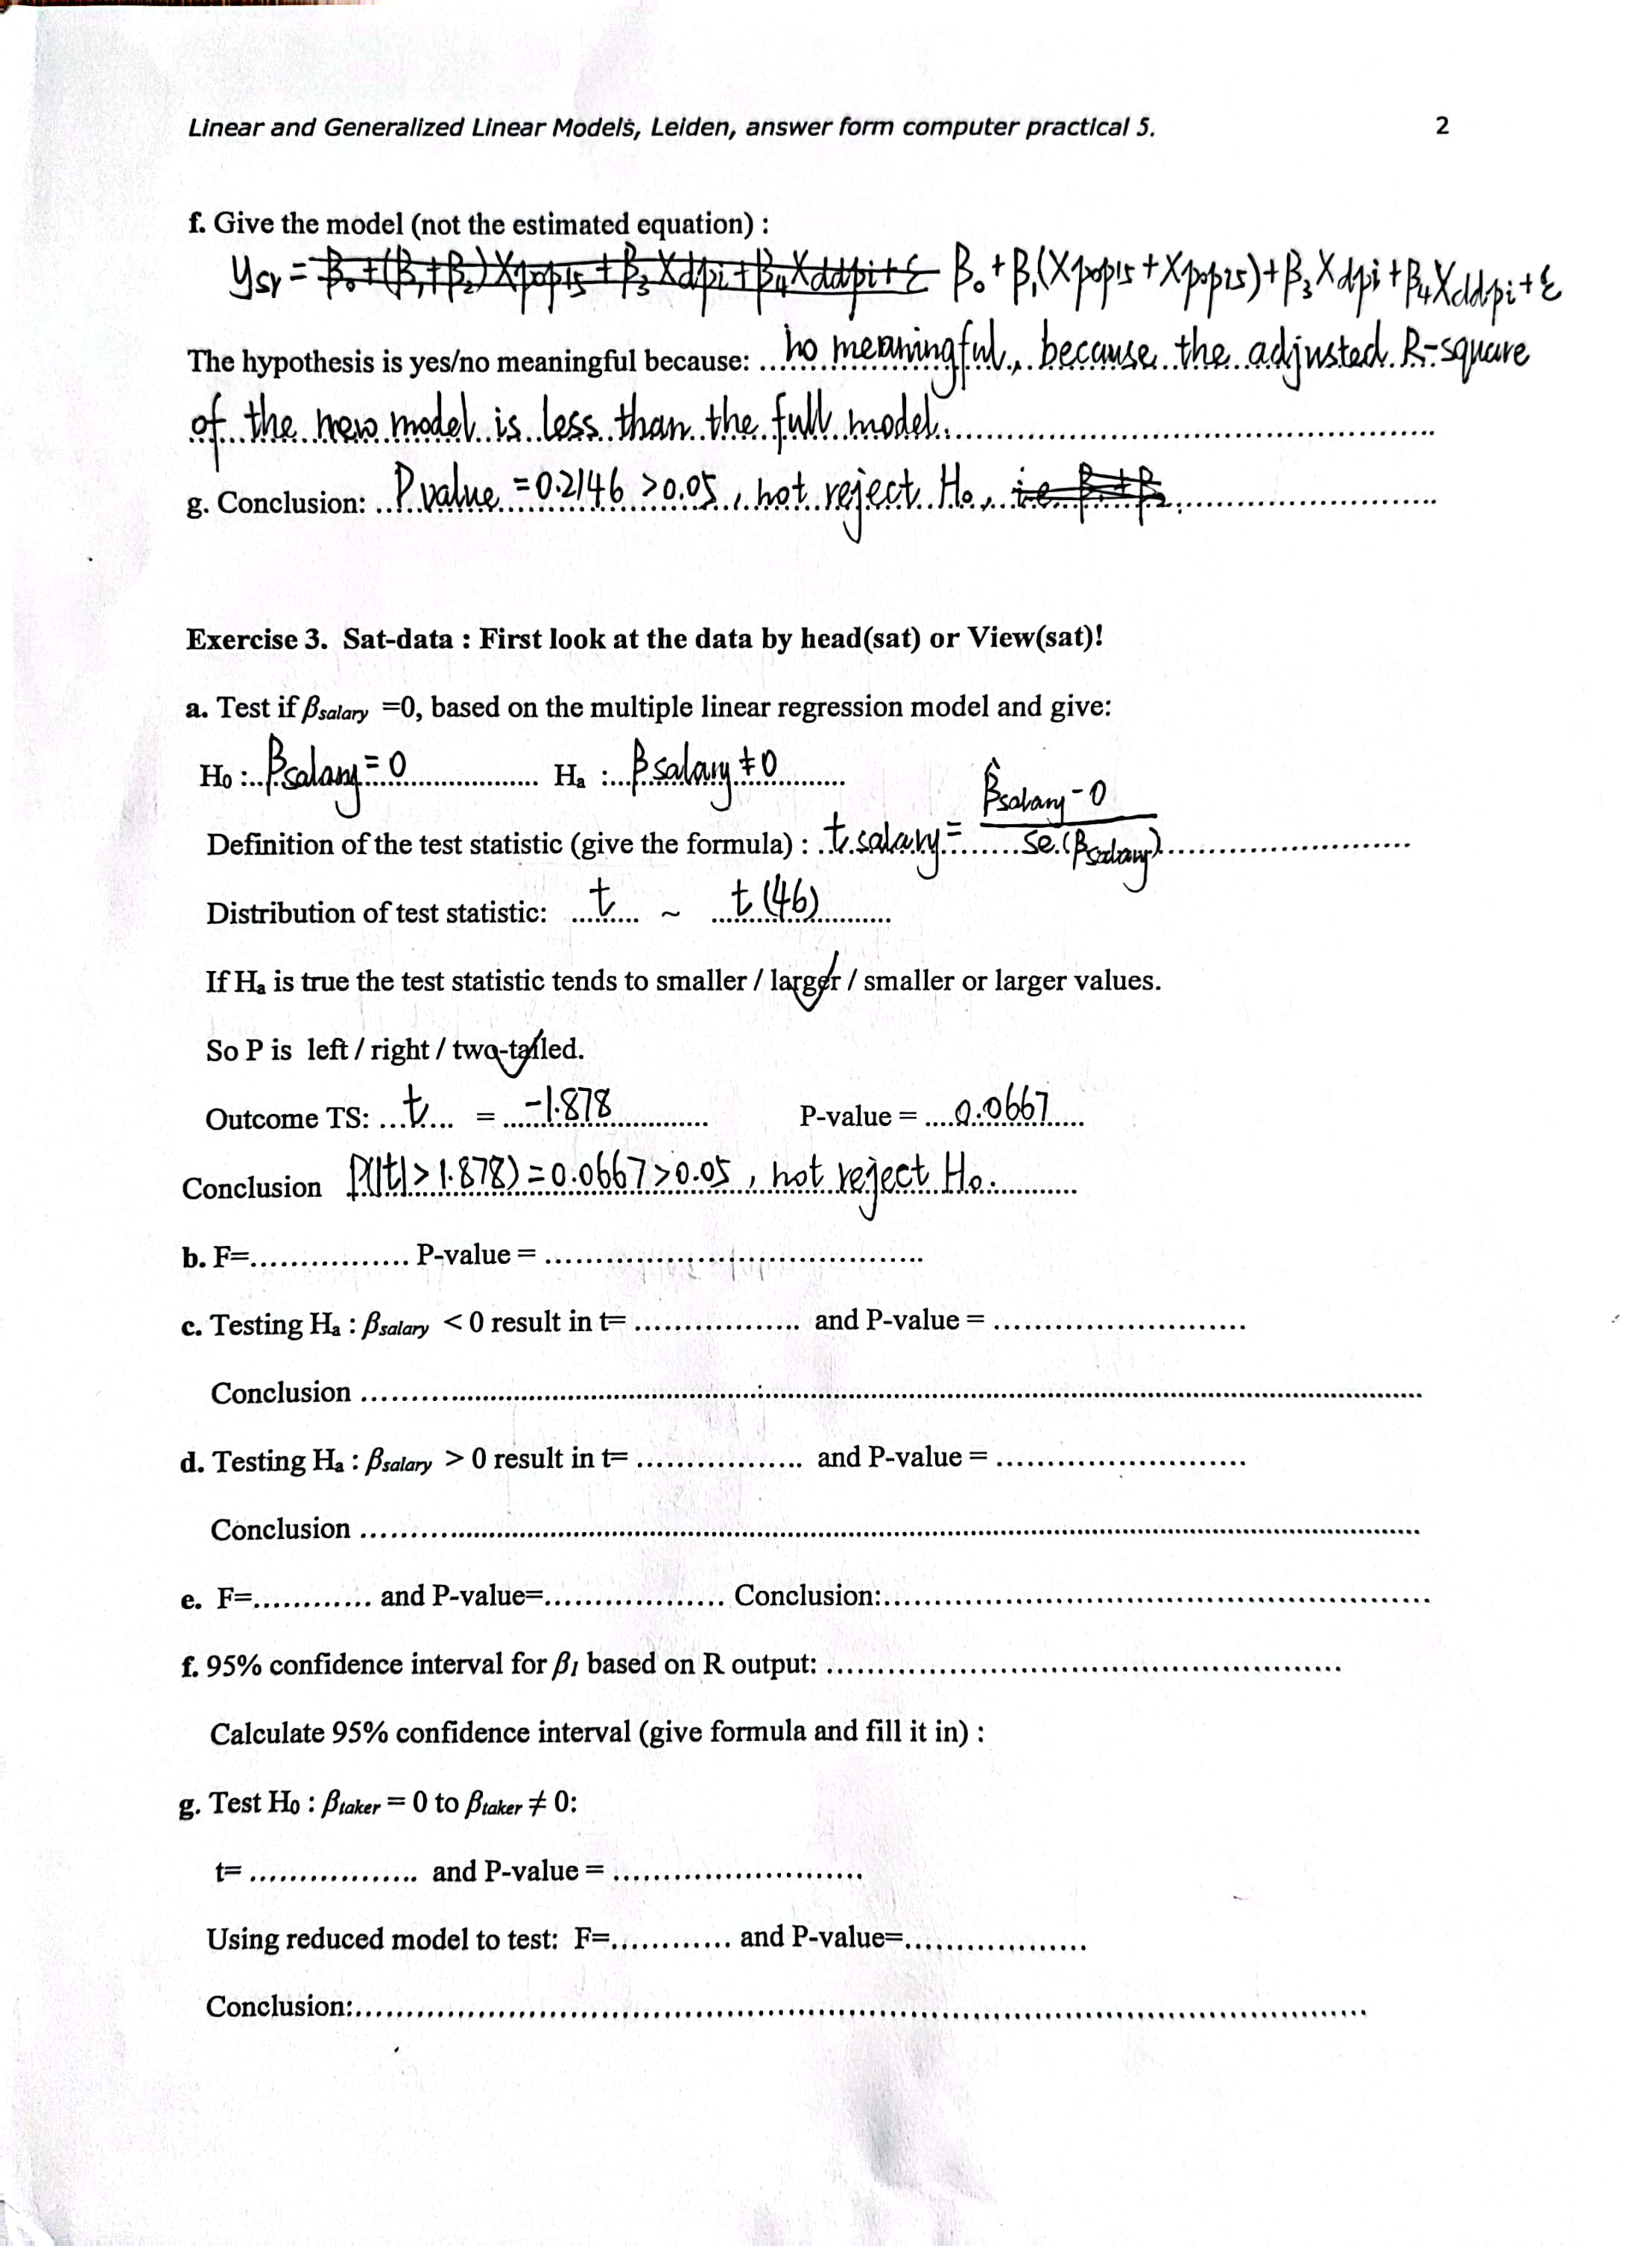 Linear and Generalized Linear Models, Leiden, answer form computer practical 5. 2
f. Give the model (not the estimated equation) :
ysr = β₀+(β₁+β₂)Xpop15+β₃Xdpi+β₄Xddpi+ε β₀+β₁(Xpop15+Xpop75)+β₃Xdpi+β₄Xddpi+ε
The hypothesis is yes/no meaningful because: ..no meaningful, because the adjusted R-square
of the new model is less than the full model.
g. Conclusion: Pvalue = 0.2146 >0.05, not reject H₀, i.e
Exercise 3. Sat-data : First look at the data by head(sat) or View(sat)!
a. Test if βsalary =0, based on the multiple linear regression model and give:
H₀ : βsalary = 0 Hₐ : βsalary ≠ 0
Definition of the test statistic (give the formula) : t salary = (β̂salary - 0) / se(βsalary)
Distribution of test statistic: t ~ t(46)
If Hₐ is true the test statistic tends to smaller / larger / smaller or larger values.
So P is left / right / two-tailed.
Outcome TS: t = -1.878 P-value = 0.0667
Conclusion P(|t|>1.878) = 0.0667>0.05, not reject H₀.
b. F=................ P-value = ......................................
c. Testing Hₐ : βsalary < 0 result in t= ................. and P-value = .........................
Conclusion ..........................................................................................
d. Testing Hₐ : βsalary > 0 result in t= ................. and P-value = .........................
Conclusion ..........................................................................................
e. F=............ and P-value=.................. Conclusion:......................................................
f. 95% confidence interval for β₁ based on R output: ...................................................
Calculate 95% confidence interval (give formula and fill it in) :
g. Test H₀ : βtaker = 0 to βtaker ≠ 0:
t= ................. and P-value = .........................
Using reduced model to test: F=............ and P-value=..................
Conclusion:.....................................................................................................